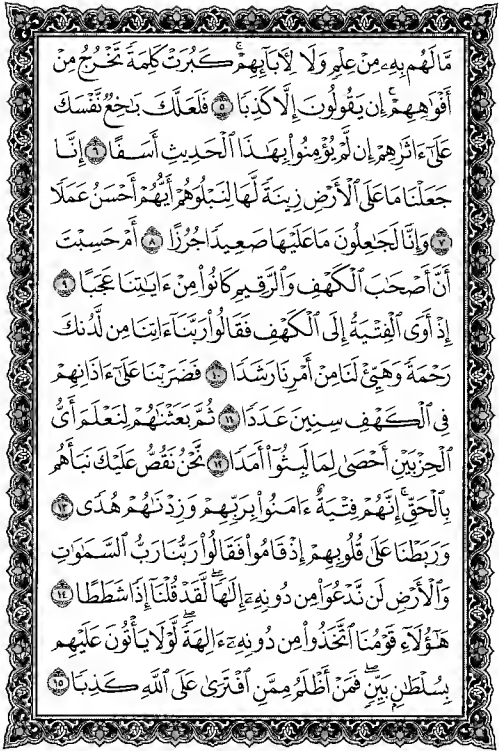 مَّا لَهُم بِهِۦ مِنْ عِلْمٍ وَلَا لِأَبَآئِهِمْ ۚ كَبُرَتْ كَلِمَةً تَخْرُجُ مِنْ
أَفْوَٰهِهِمْ ۚ إِن يَقُولُونَ إِلَّا كَذِبًا ٥ فَلَعَلَّكَ بَـٰخِعٌ نَّفْسَكَ
عَلَىٰٓ ءَاثَـٰرِهِمْ إِن لَّمْ يُؤْمِنُوا۟ بِهَـٰذَا ٱلْحَدِيثِ أَسَفًا ٦ إِنَّا
جَعَلْنَا مَا عَلَى ٱلْأَرْضِ زِينَةً لَّهَا لِنَبْلُوَهُمْ أَيُّهُمْ أَحْسَنُ عَمَلًا
٧ وَإِنَّا لَجَـٰعِلُونَ مَا عَلَيْهَا صَعِيدًا جُرُزًا ٨ أَمْ حَسِبْتَ
أَنَّ أَصْحَـٰبَ ٱلْكَهْفِ وَٱلرَّقِيمِ كَانُوا۟ مِنْ ءَايَـٰتِنَا عَجَبًا ٩
إِذْ أَوَى ٱلْفِتْيَةُ إِلَى ٱلْكَهْفِ فَقَالُوا۟ رَبَّنَآ ءَاتِنَا مِن لَّدُنكَ
رَحْمَةً وَهَيِّئْ لَنَا مِنْ أَمْرِنَا رَشَدًا ١٠ فَضَرَبْنَا عَلَىٰٓ ءَاذَانِهِمْ
فِى ٱلْكَهْفِ سِنِينَ عَدَدًا ١١ ثُمَّ بَعَثْنَـٰهُمْ لِنَعْلَمَ أَىُّ
ٱلْحِزْبَيْنِ أَحْصَىٰ لِمَا لَبِثُوٓا۟ أَمَدًا ١٢ نَّحْنُ نَقُصُّ عَلَيْكَ نَبَأَهُم
بِٱلْحَقِّ ۚ إِنَّهُمْ فِتْيَةٌ ءَامَنُوا۟ بِرَبِّهِمْ وَزِدْنَـٰهُمْ هُدًى ١٣
وَرَبَطْنَا عَلَىٰ قُلُوبِهِمْ إِذْ قَامُوا۟ فَقَالُوا۟ رَبُّنَا رَبُّ ٱلسَّمَـٰوَٰتِ
وَٱلْأَرْضِ لَن نَّدْعُوَا۟ مِن دُونِهِۦٓ إِلَـٰهًا ۖ لَّقَدْ قُلْنَآ إِذًا شَطَطًا ١٤
هَـٰٓؤُلَآءِ قَوْمُنَا ٱتَّخَذُوا۟ مِن دُونِهِۦٓ ءَالِهَةً ۖ لَّوْلَا يَأْتُونَ عَلَيْهِم
بِسُلْطَـٰنٍۭ بَيِّنٍ ۖ فَمَنْ أَظْلَمُ مِمَّنِ ٱفْتَرَىٰ عَلَى ٱللَّهِ كَذِبًا ١٥